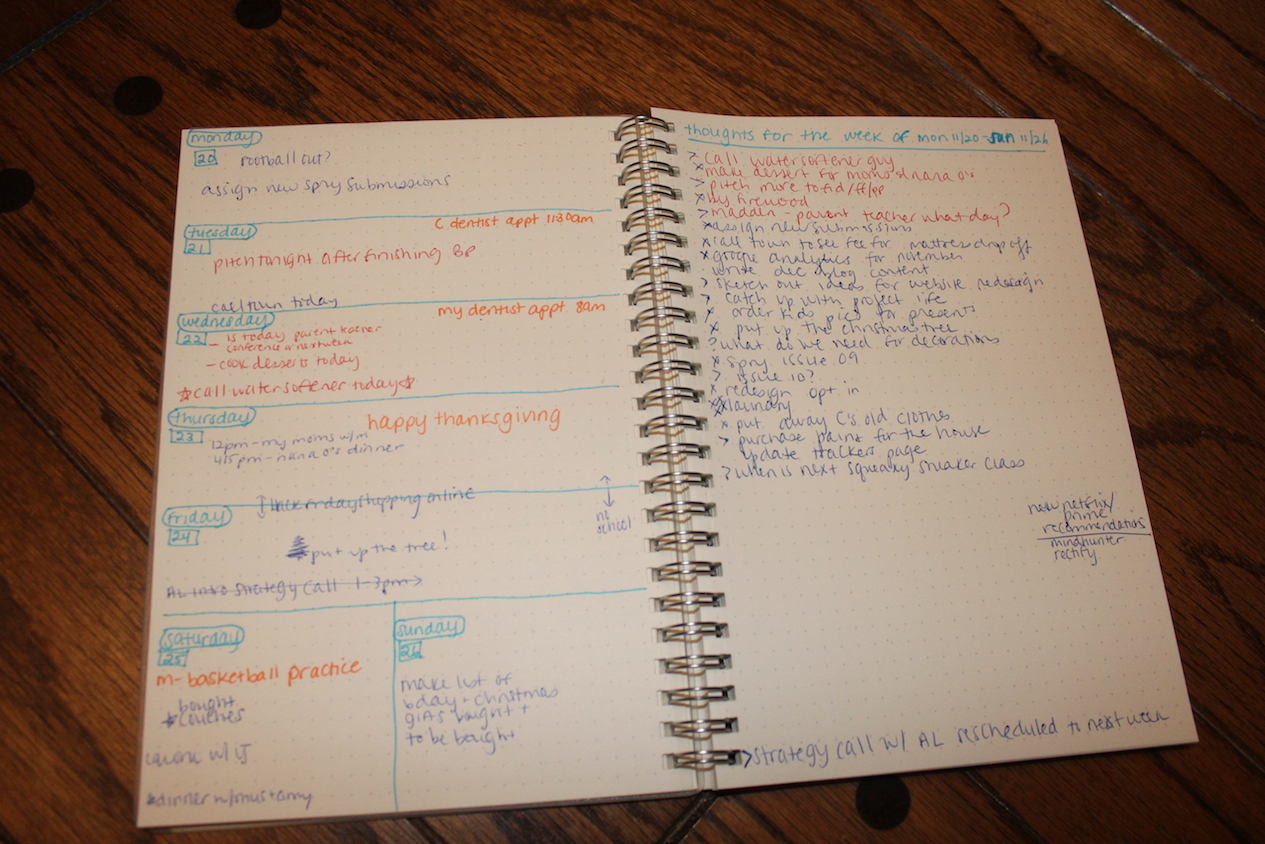 monday
20 football out?
assign new spry submissions
C dentist appt 11:30am
tuesday
21
pitch tonight after finishing BP
call town today
my dentist appt 8am
wednesday
22 - is today parent teacher
conference or next week
- cook desserts today
☆call water softener today☆
thursday
happy thanksgiving
23 12pm - my moms w/m
4:15pm - nana o's dinner
black friday shopping online
friday
24
no
school
put up the tree!
AL intro strategy call 1-3pm →
saturday
25
m- basketball practice
bought
couches
w/ LJ
dinner
sunday
26
make list of
bday + christmas
gifts bought +
to be bought
thoughts for the week of mon 11/20 - sun 11/26
> call water softener guy
x make dessert for moms + nana o's
> pitch more to fid/ff/pp
x buy firewood
> madden - parent teacher what day?
x assign new submissions
x call town to see fee for mattress drop off
x google analytics for november
· write dec blog content
> sketch out ideas for website redesign
> catch up with project life
x order kids pics for presents
x put up the christmas tree
? what do we need for decorations
x spry issue 09
> issue 10?
x redesign opt in
x laundry
x put away C's old clothes
> purchase paint for the house
update trackers page
? when is next squeaky sneaker class
new netflix/
prime
recommendations
mindhunter
rectify
> strategy call w/ AL rescheduled to next week